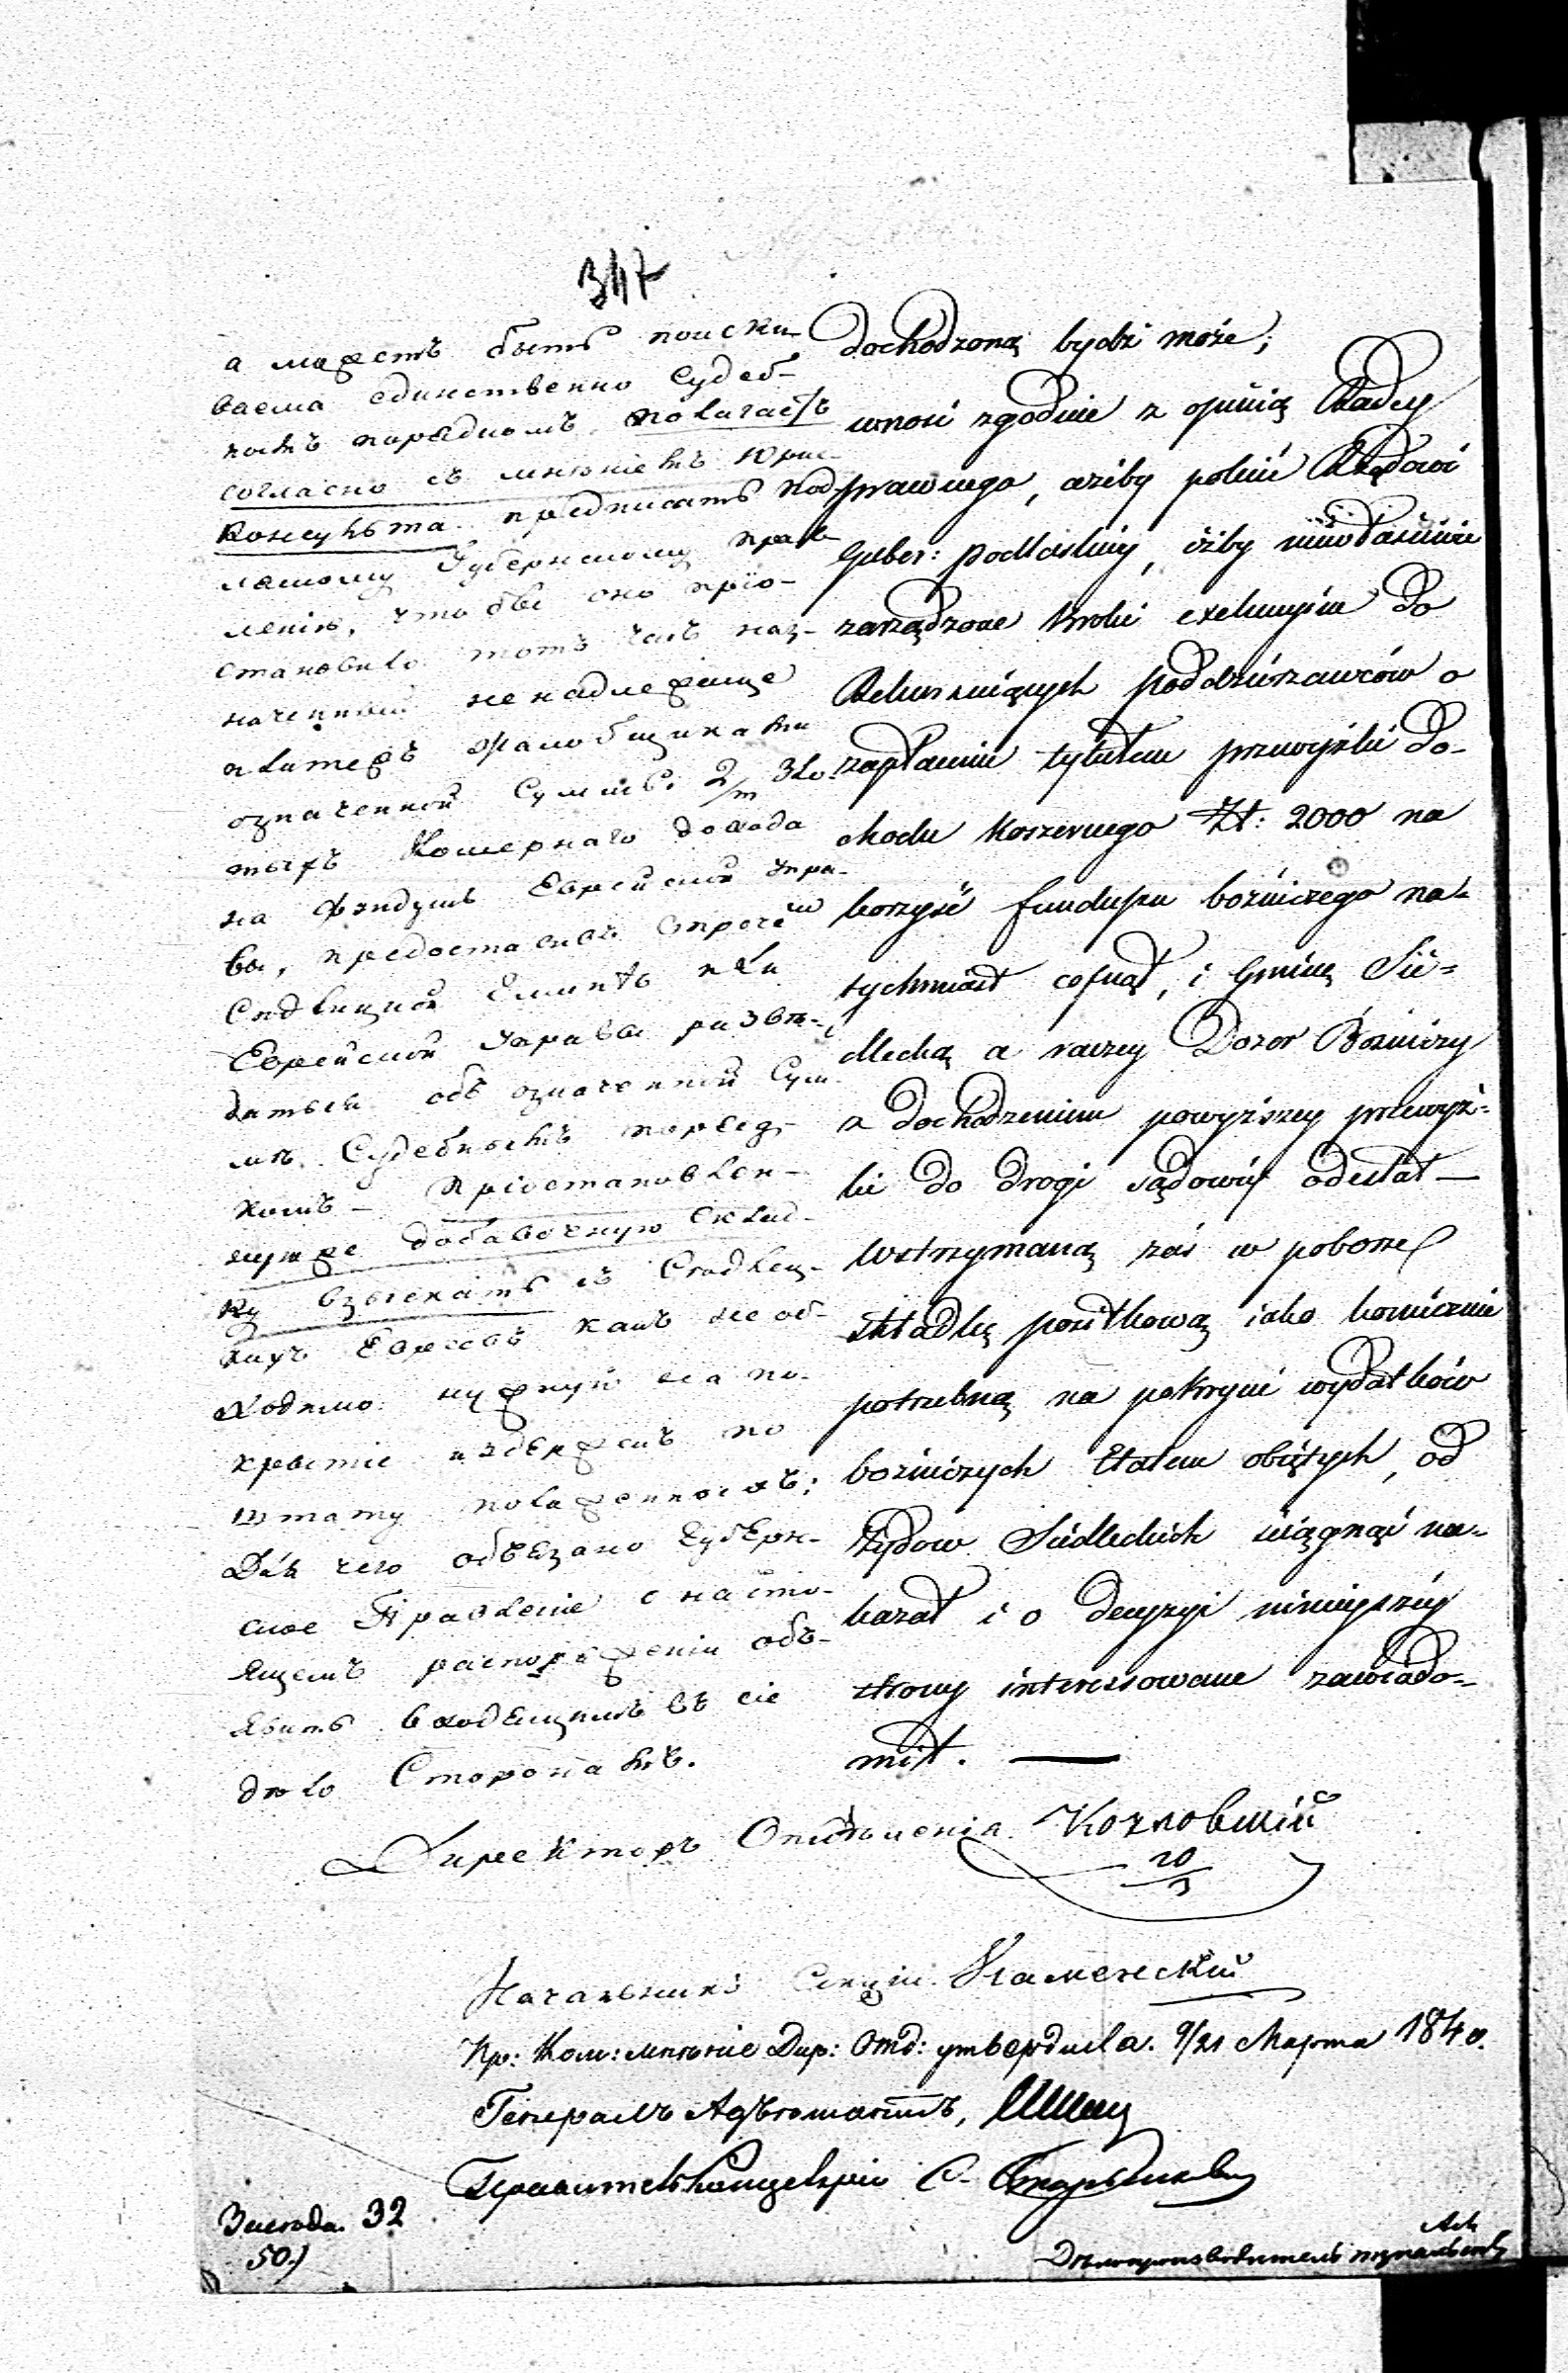 347
а можетъ быть поски-
ваема единственно Судеб-
нымъ порядкомъ. полагаетъ
согласно съ мнѣніемъ Юрис-
консульта предписать Под-
ляскому Губернскому Прав-
ленію, чтобы оно пріо-
становило тотъ часъ наз-
наченной ненадлежаще
жалобщиками
означенной Суммы 2/m Зло-
тыхъ Кошернаго дохода
на фундушъ Еврейской Упра-
вы, предоставивъ впрочемъ
Сѣдлецкой Гминѣ или
Еврейской Управѣ развѣ-
даться объ означенной Сум-
мѣ Судебнымъ поряд-
комъ – Пріостановлен-
нуюже добавочную Склад-
ку взыскать съ Сѣдлец-
кихъ Евреевъ какъ необ-
ходимо нужную на по-
крытіе издержекъ по
штату положенныхъ;
Для чего обязано Губерн-
ское Правленіе о насто-
ящемъ распоряженіи объ-
явить входящимъ въ сіе
дѣло Сторонамъ.
dochodzoną bydź może;
wnosi zgodnie z opinią Radcy
prawnego, ażeby polecić Rządowi
Guber: Podlaskiey, iżby niewłaściwie
zarządzone kroki exekucyine do
Rekurruiących poddzierżawców o
zapłacenie tytułem przewyżki do-
chodu koszernego Zł: 2000 na
korzyść funduszu bożniczego na-
tychmiast cofnął, i Gminę Sie-
dlecką a raczey Dozor Bożniczy
z dochodzeniem powyższey przewyż-
ki do drogi sądowéy odesłał —
Wstrzymaną zaś w poborze
składkę posiłkową iako koniecznie
potrzebną na pokrycie wydatków
bożniczych Etatem obiętych, od
Żydow Siedleckich ściągnąć na-
kazał i o decyzyi ninieyszéy
strony interessowane zawiado-
mił. —
Директоръ Отдѣленія Козловскій
20/3
Начальникъ Секціи Каменскій
Пр: Ком: мнѣніе Дир: Отд: утвердила. 9/21 Марта 1840.
Генералъ Адъютантъ, Шиповъ
Правитель Канцеляріи С.
32
50.)
Дѣлопроизводитель